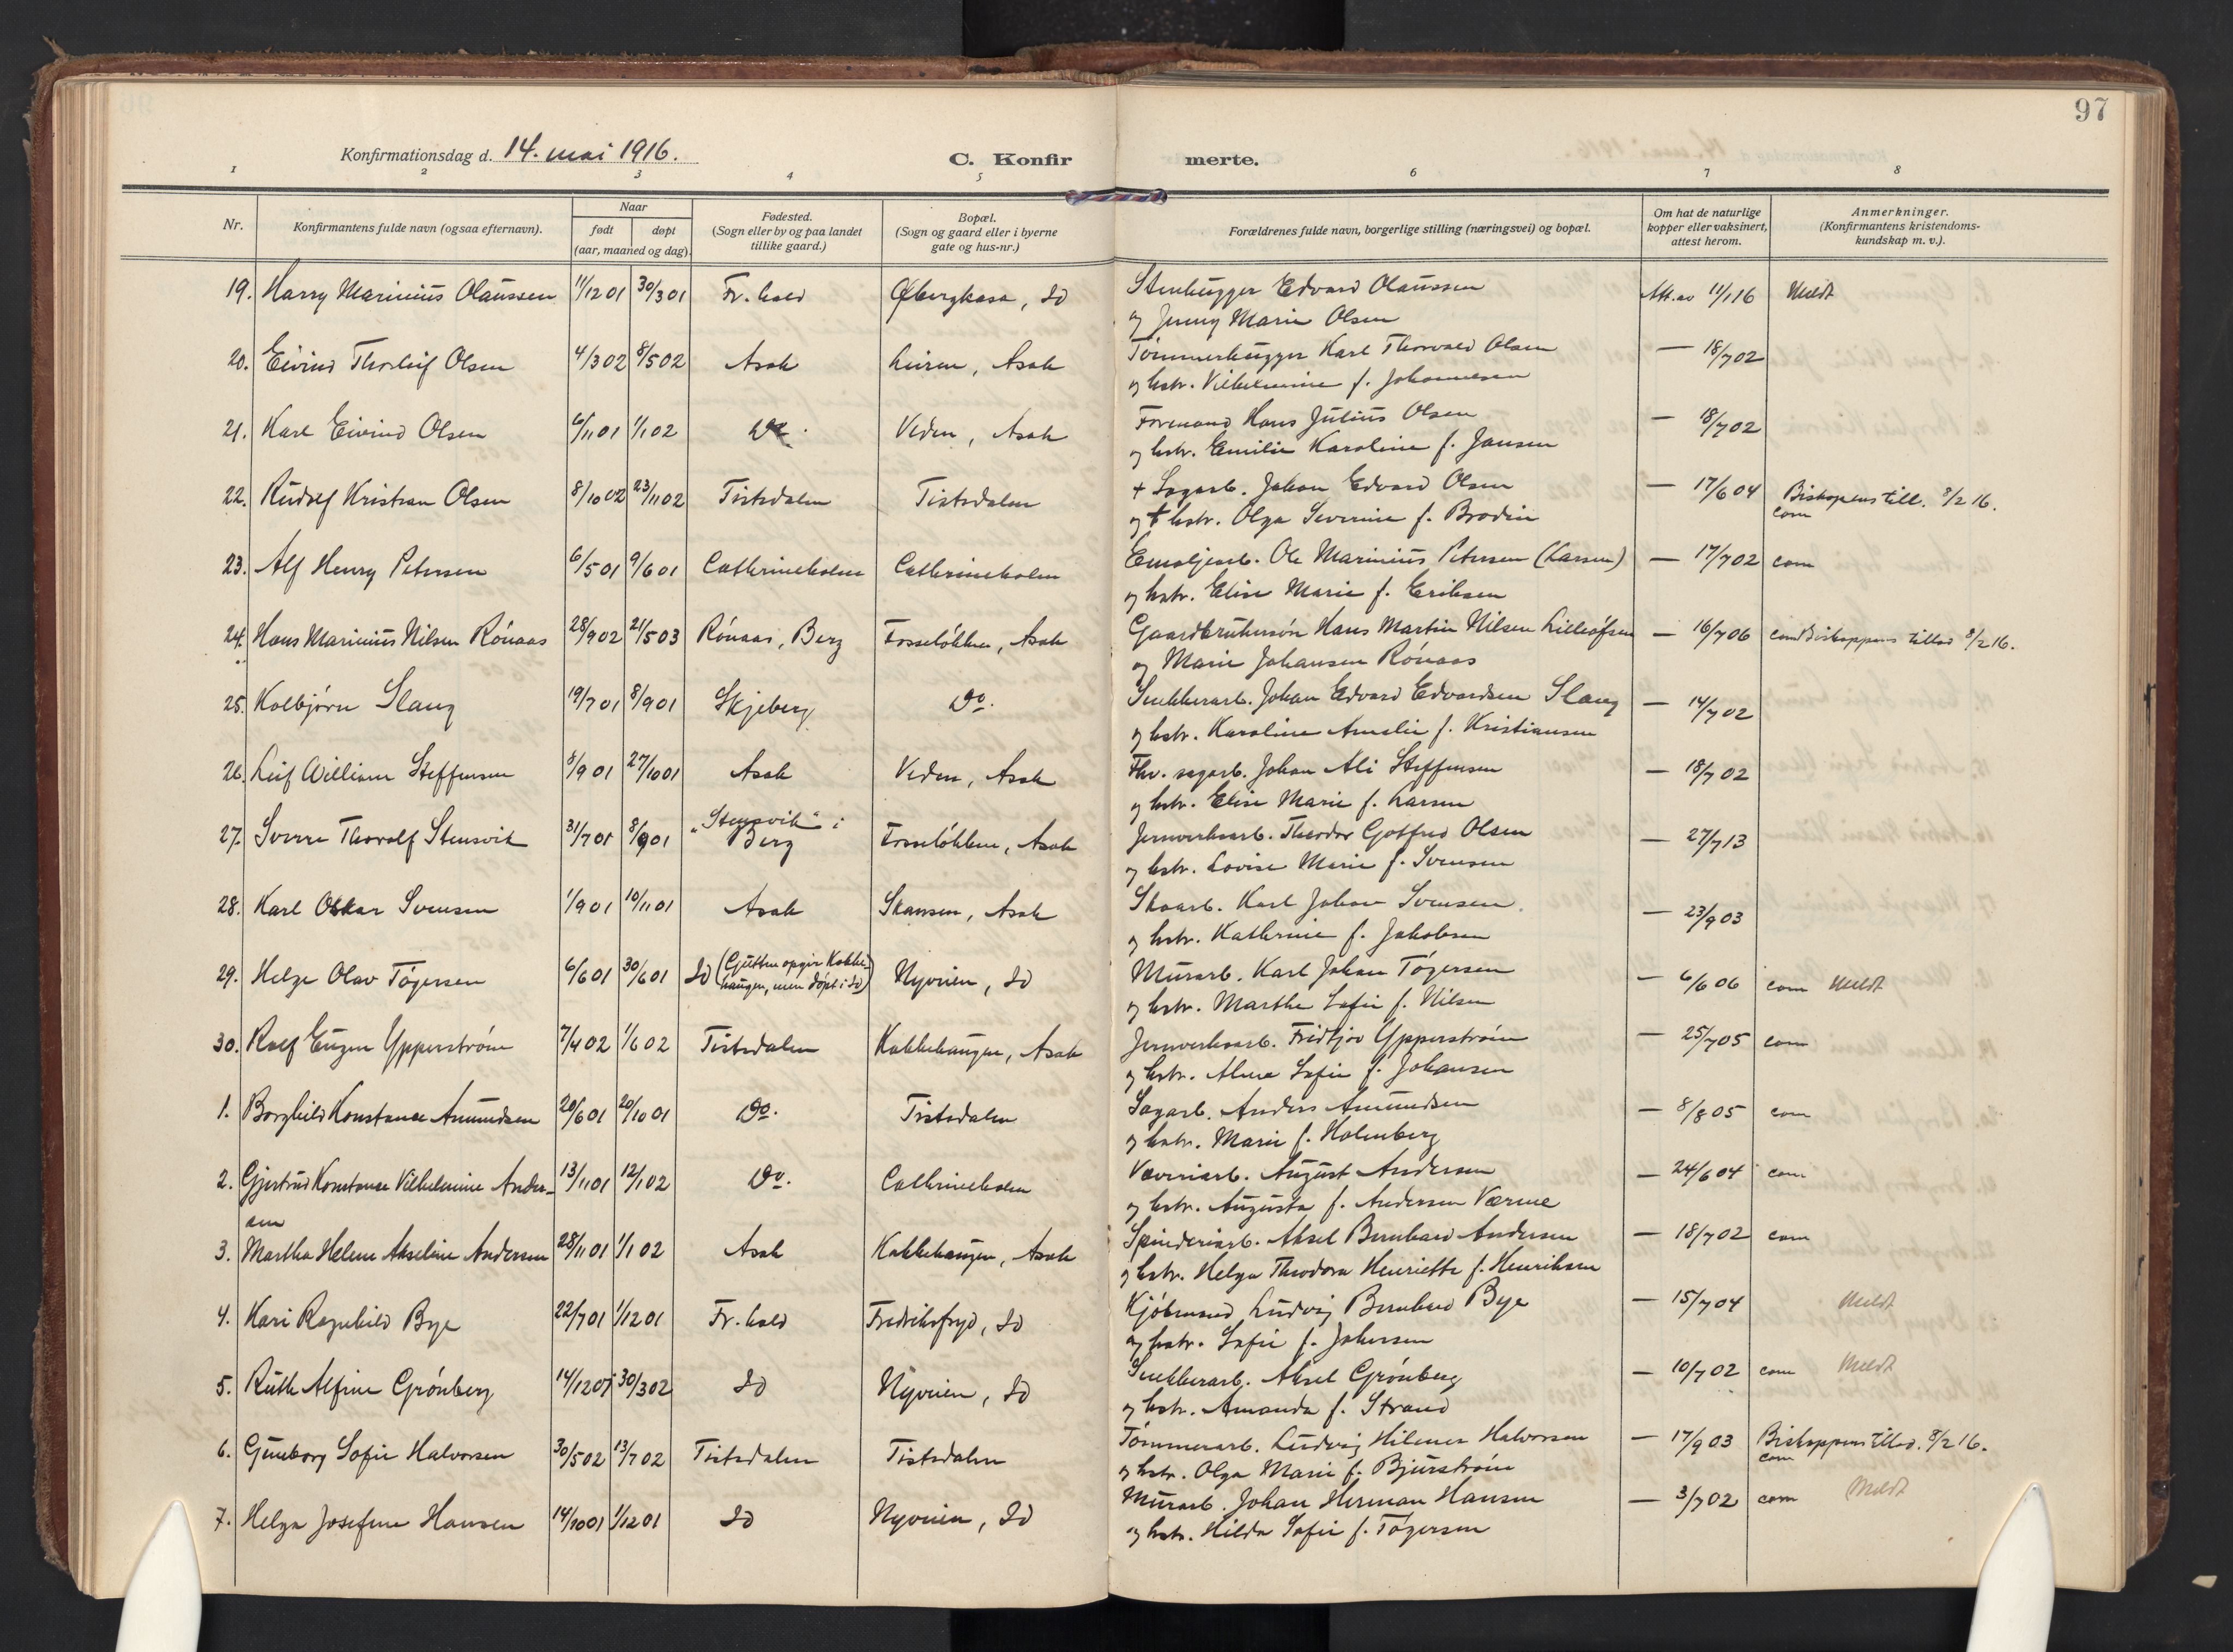 97
Konfirmationsdag d. 14. mai 1916.
C. Konfir
merte.
1 2 3 4 5 6 7 8
Nr.
Konfirmantens fulde navn (ogsaa efternavn).
Naar
født døpt
(aar, maaned og dag).
Fødested.
(Sogn eller by og paa landet
tillike gaard.)
Bopæl.
(Sogn og gaard eller i byerne
gate og hus-nr.)
Forældrenes fulde navn, borgerlige stilling (næringsvei) og bopæl.
Om hat de naturlige
kopper eller vaksinert,
attest herom.
Anmerkninger.
(Konfirmantens kristendoms-
kundskap m. v.).
19. Harry Marinius Olaussen 11/12 01 30/3 01 Fr.hald Øbergkasa, Id Stenhugger Edvard Olaussen Att. av 11/1 16 Meldt
og Jenny Marie Olsen
20. Eivind Thorleif Olsen 4/3 02 8/5 02 Asak Leiren, Asak Tømmerhugger Karl Thorvald Olsen — 18/7 02
og hstr. Vilhelmine f. Johannesen
21. Karl Eivind Olsen 6/11 01 1/1 02 Do. Veden, Asak Formand Hans Julius Olsen — 18/7 02
og hstr. Emilie Karoline f. Jansen
22. Rudolf Kristian Olsen 8/10 02 23/11 02 Tistedalen Tistedalen + Sagarb. Johan Edvard Olsen — 17/6 04 Biskopens till. 8/2 16.
og + hstr. Olga Severine f. Brodin com
23. Alf Henry Petersen 6/5 01 9/6 01 Cathrineholm Cathrineholm Emaljearb. Ole Marinius Petersen (Larsen) — 17/7 02 com
og hstr. Elise Marie f. Eriksen
24. Hans Marinius Nilsen Rónaas 28/9 02 21/5 03 Rónaas, Berg Fosseløkken, Asak Gaardbrukersøn Hans Martin Nilsen — 16/7 06 com Biskoppens tillad 8/2 16.
og Marie Johansen Rónaas
25. Kolbjørn Slang 19/7 01 8/9 01 Skjeberg Do. Snekkerarb. Johan Edvard Edvardsen Slang — 14/7 02
og hstr. Karoline Amalie f. Kristiansen
26. Leif William Steffensen 8/9 01 27/10 01 Asak Veden, Asak Fhv. sagarb. Johan Ali Steffensen — 18/7 02
og hstr. Elise Marie f. Larsen
27. Sverre Thoralf Stensvik 31/7 01 8/9 01 „Stensvik" i Berg Fosseløkken, Asak Jernverksarb. Theodor Gotfred Olsen — 27/7 13
og hstr. Lovise Marie f. Svensen
28. Karl Oskar Svensen 1/9 01 10/11 01 Asak Skansen, Asak Skoarb. Karl Johan Svensen — 23/9 03
og hstr. Kathrine f. Jakobsen
29. Helge Olav Tøgersen 6/6 01 30/6 01 Id (Gutten opgir Kokke- Nyveien, Id Murarb. Karl Johan Tøgersen — 6/6 06 com Meldt
haugen, men døpt i Id) og hstr. Marthe Sofie f. Nilsen
30. Rolf Eugen Ypperstrøm 7/4 02 1/6 02 Tistedalen Kokkehaugen, Asak Jernverksarb. Fridtjov Ypperstrøm — 25/7 05 com
og hstr. Alma Sofie f. Johansen
1. Borghild Konstance Amundsen 20/6 01 20/10 01 Do. Tistedalen Sagarb. Anders Amundsen — 8/8 05 com
og hstr. Marie f. Holmberg
2. Gjertrud Konstance Vilhelmine Ander- 13/11 01 12/1 02 Do. Cathrineholm Væveriarb. August Andersen — 24/6 04 com
sen og hstr. Augusta f. Andersen Værme
3. Martha Helene Akseline Andersen 28/11 01 1/1 02 Asak Kokkehaugen, Asak Spinderiarb. Aksel Bernhard Andersen — 18/7 02 com
og hstr. Helga Theodora Henriette f. Henriksen
4. Kari Ragnhild Bye 22/7 01 1/12 01 Fr.hald Fredriksfryd, Id Kjøbmand Ludvig Bernhard Bye — 15/7 04 Meldt
og hstr. Sofie f. Johansen
5. Ruth Alfine Grønberg 14/12 01 30/3 02 Id Nyveien, Id Snekkerarb. Aksel Grønberg — 10/7 02 com Meldt
og hstr. Amanda f. Strand
6. Gunborg Sofie Halvorsen 30/5 02 13/7 02 Tistedalen Tistedalen Tømmerarb. Ludvig Hilmer Halvorsen — 17/9 03 Biskoppens tillad. 8/2 16.
og hstr. Olga Marie f. Bjurstrøm com
7. Helga Josefine Hansen 14/10 01 1/12 01 Id Nyveien, Id Murarb. Johan Herman Hansen — 3/7 02 com Meldt
og hstr. Hilda Sofie f. Tøgersen